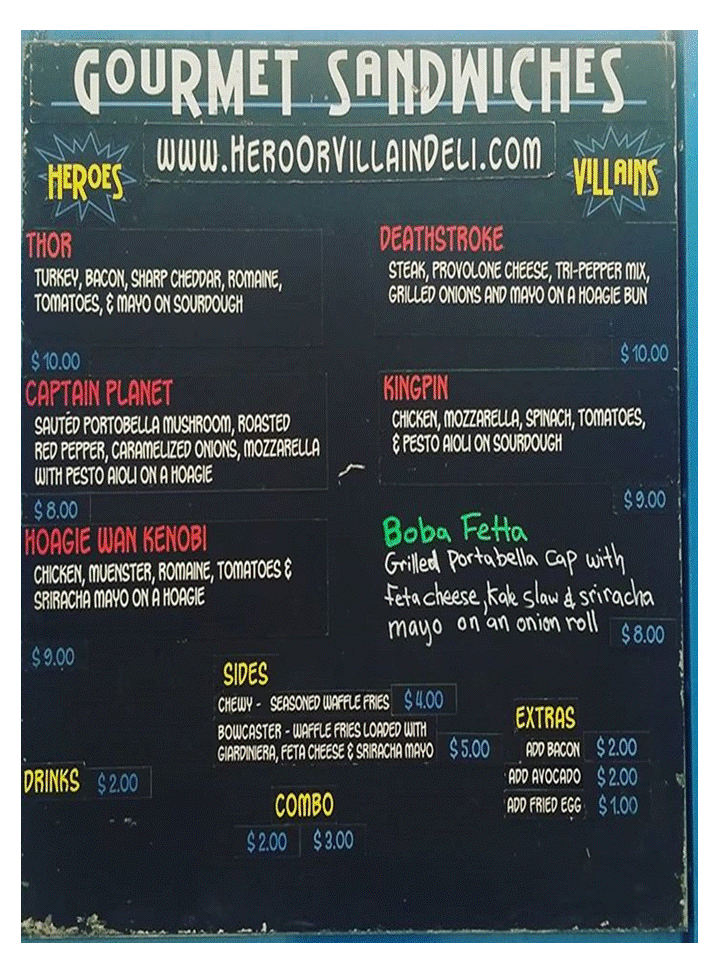 GOURMET SANDWICHES
WWW.HEROORVILLAINDELI.COM
HEROES
THOR
TURKEY, BACON, SHARP CHEDDAR, ROMAINE,
TOMATOES, & MAYO ON SOURDOUGH
$10.00
CAPTAIN PLANET
SAUTÉD PORTOBELLA MUSHROOM, ROASTED
RED PEPPER, CARAMELIZED ONIONS, MOZZARELLA
WITH PESTO AIOLI ON A HOAGIE
$8.00
HOAGIE WAN KENOBI
CHICKEN, MUENSTER, ROMAINE, TOMATOES &
SRIRACHA MAYO ON A HOAGIE
$9.00
VILLAINS
DEATHSTROKE
STEAK, PROVOLONE CHEESE, TRI-PEPPER MIX,
GRILLED ONIONS AND MAYO ON A HOAGIE BUN
$10.00
KINGPIN
CHICKEN, MOZZARELLA, SPINACH, TOMATOES,
& PESTO AIOLI ON SOURDOUGH
$9.00
Boba Fetta
Grilled Portabella Cap with
feta cheese, Kale slaw & sriracha
mayo on an onion roll $8.00
SIDES
CHEWY - SEASONED WAFFLE FRIES $4.00
BOWCASTER - WAFFLE FRIES LOADED WITH
GIARDINIERA, FETA CHEESE & SRIRACHA MAYO $5.00
EXTRAS
ADD BACON $2.00
ADD AVOCADO $2.00
ADD FRIED EGG $1.00
DRINKS $2.00
COMBO
$2.00 $3.00